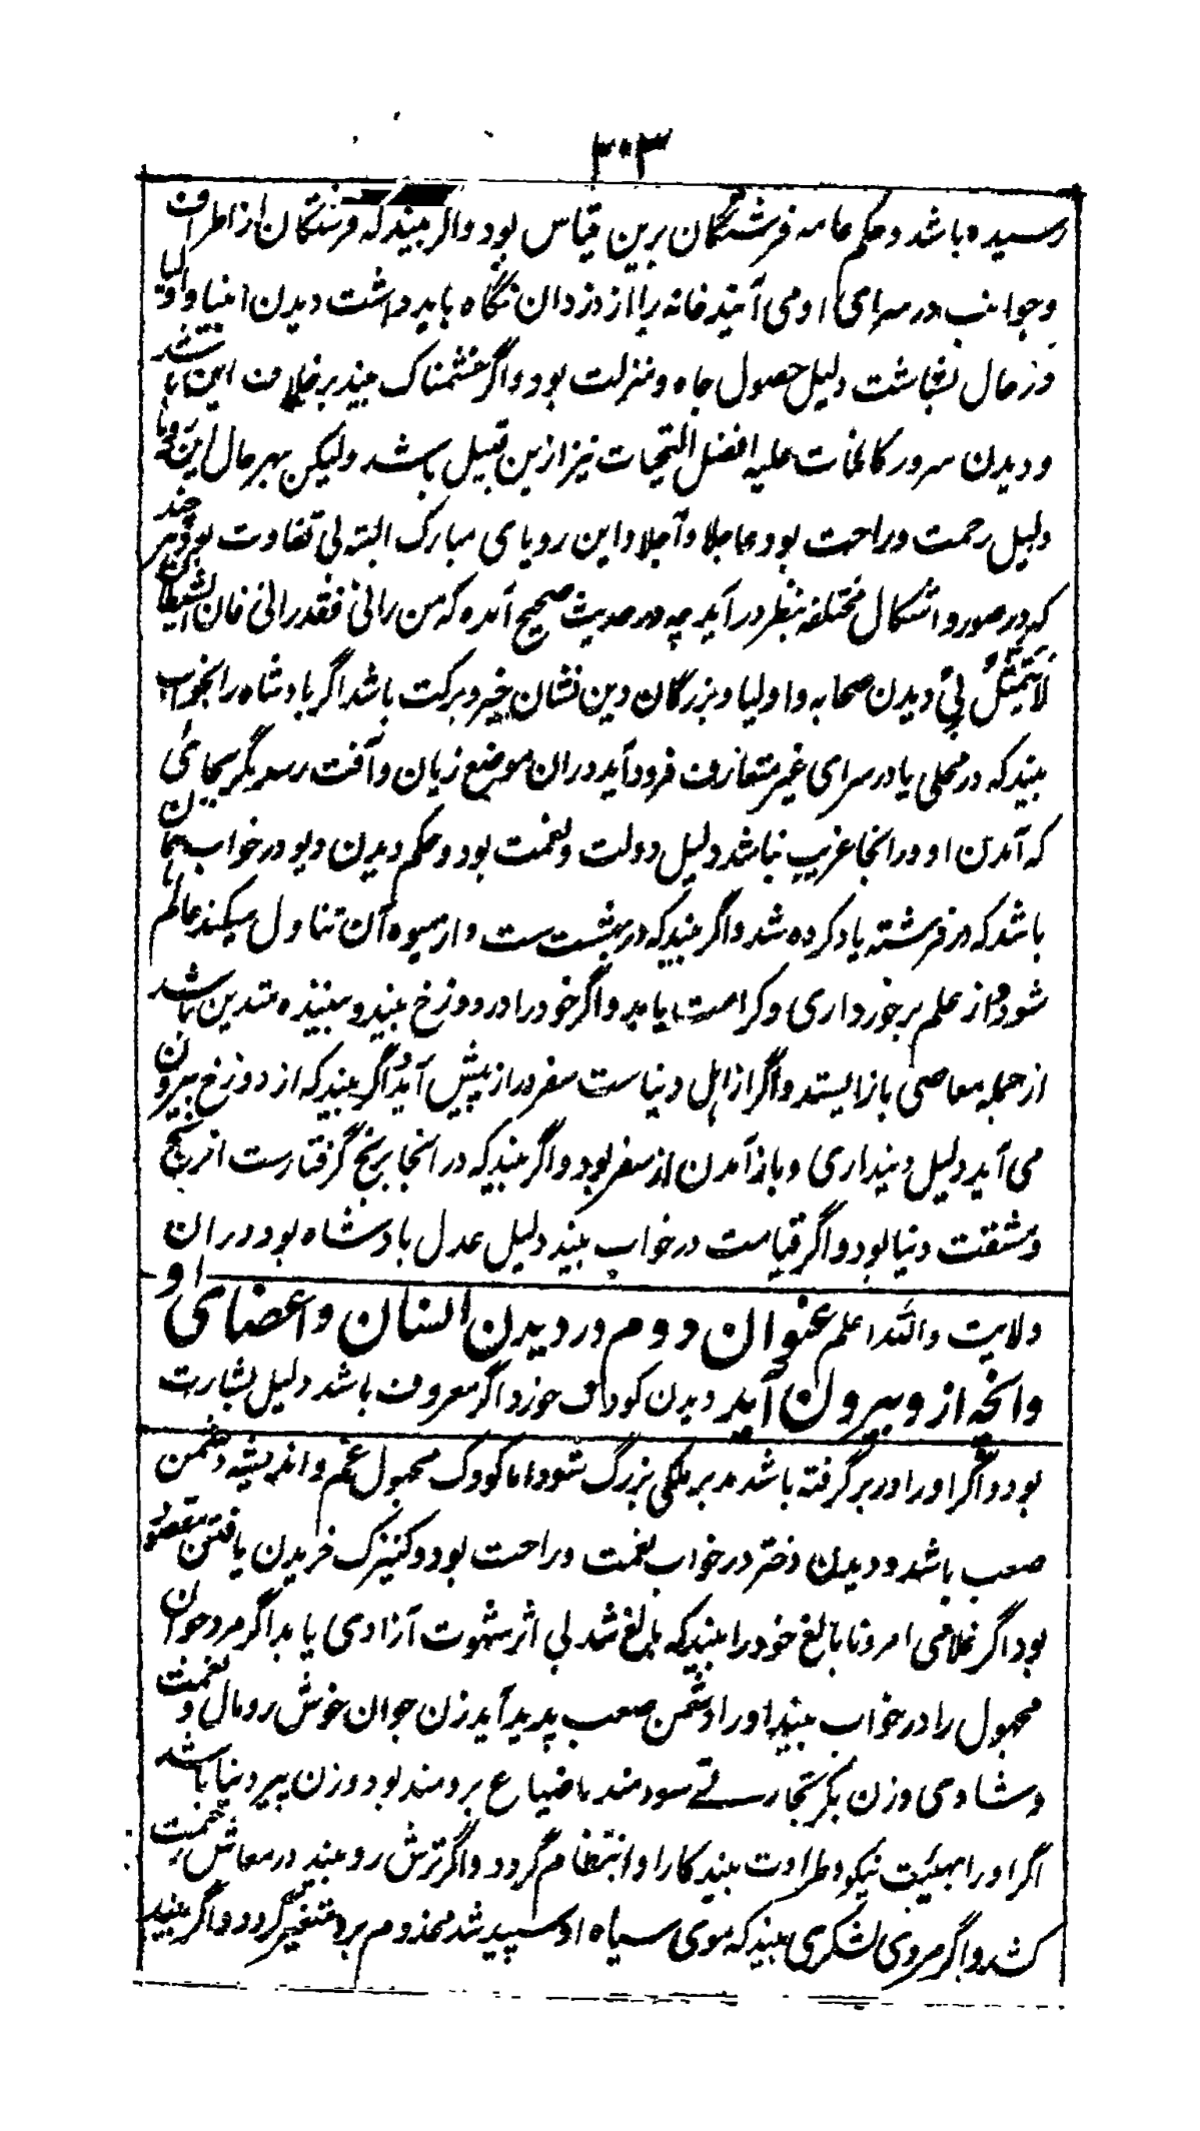 ۳۰۳
رسیده باشد و حکم عامه فرشتگان برین قیاس بود و اگر بیند که فرشتگان از اطراف
و جوانب در سرای او می آیند خانه را از دزدان نگاه باید داشت دیدن انبیا و اولیا
در حال بشاشت دلیل حصول جاه و منزلت بود و اگر خشمناک بیند بر خلاف این باشد
و دیدن سرور کائنات علیه افضل التحیات نیز ازین قبیل باشد ولیکن بهر حال این رویا
دلیل رحمت و راحت بود عاجلا و آجلا و این رویای مبارک البته بی تفاوت بود هر چند
که در صور و اشکال مختلفه بنظر در آید چه در حدیث صحیح آمده که من رانی فقد رانی فان الشیطان
لا یتمثل بی و دیدن صحابه و اولیا و بزرگان دین نشان خیر و برکت باشد اگر بادشاه را بخواب
بیند که در محلی یا در سرای غیر متعارف فرود آید دران موضع زیان و آفت رسد مگر بجائی
که آمدن او در انجا غریب نباشد دلیل دولت و نعمت بود و حکم دیدن دیو در خواب همان
باشد که در فرشته یاد کرده شد و اگر بیند که در بهشت ست و از میوه آن تناول میکند عالم
شود و از علم برخورداری و کرامت یابد و اگر خود را در دوزخ بیند و بیننده متدین باشد
از جمله معاصی باز ایستد و اگر از اهل دنیاست سفر دراز پیش آید و اگر بیند که از دوزخ بیرون
می آید دلیل دینداری و باز آمدن از سفر بود و اگر بیند که در انجا برنج گرفتارست از رنج
و مشقت دنیا بود و اگر قیامت در خواب بیند دلیل عدل بادشاه بود دران
ولایت والله اعلم عنوان دوم در دیدن انسان و اعضای او
وانچه از و بیرون آید دیدن کودک خورد اگر معروف باشد دلیل بشارت
بود و اگر او را در بر گرفته باشد مدبر ملکی بزرگ شود اما کودک مجهول غم و اندیشه دشمن
صعب باشد و دیدن دختر در خواب نعمت و راحت بود و کنیزک خریدن یافتن مقصود
بود اگر غلامی امرد نابالغ خود را بیند که بالغ شد بی اثر شهوت آزادی یابد اگر مرد جوان
مجهول را در خواب بیند او را دشمن صعب پدید آید زن جوان خوش رو مال و نعمت
و شادی و زن بکر تجارتے سودمند یا ضیاع برومند بود و زن پیر دنیا باشد
اگر او را بهیئت نیکو و طراوت بیند کار او انتظام گردد و اگر ترش رو بیند در معاش زحمت
کشد و اگر مردی لشکری بیند که موی سیاه او سپید شد مخدوم برو متغیر گردد و اگر بیند